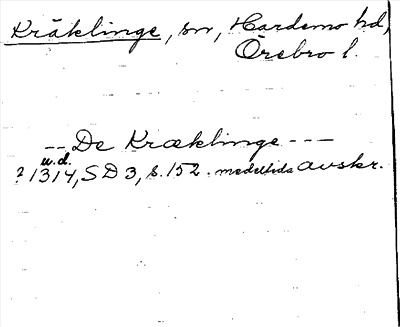 Kräklinge, sn, Hardemo hd,
Örebro l.
-- De Kræklinge ---
u.d.
? 1314, SD 3, s. 152. medeltida avskr.